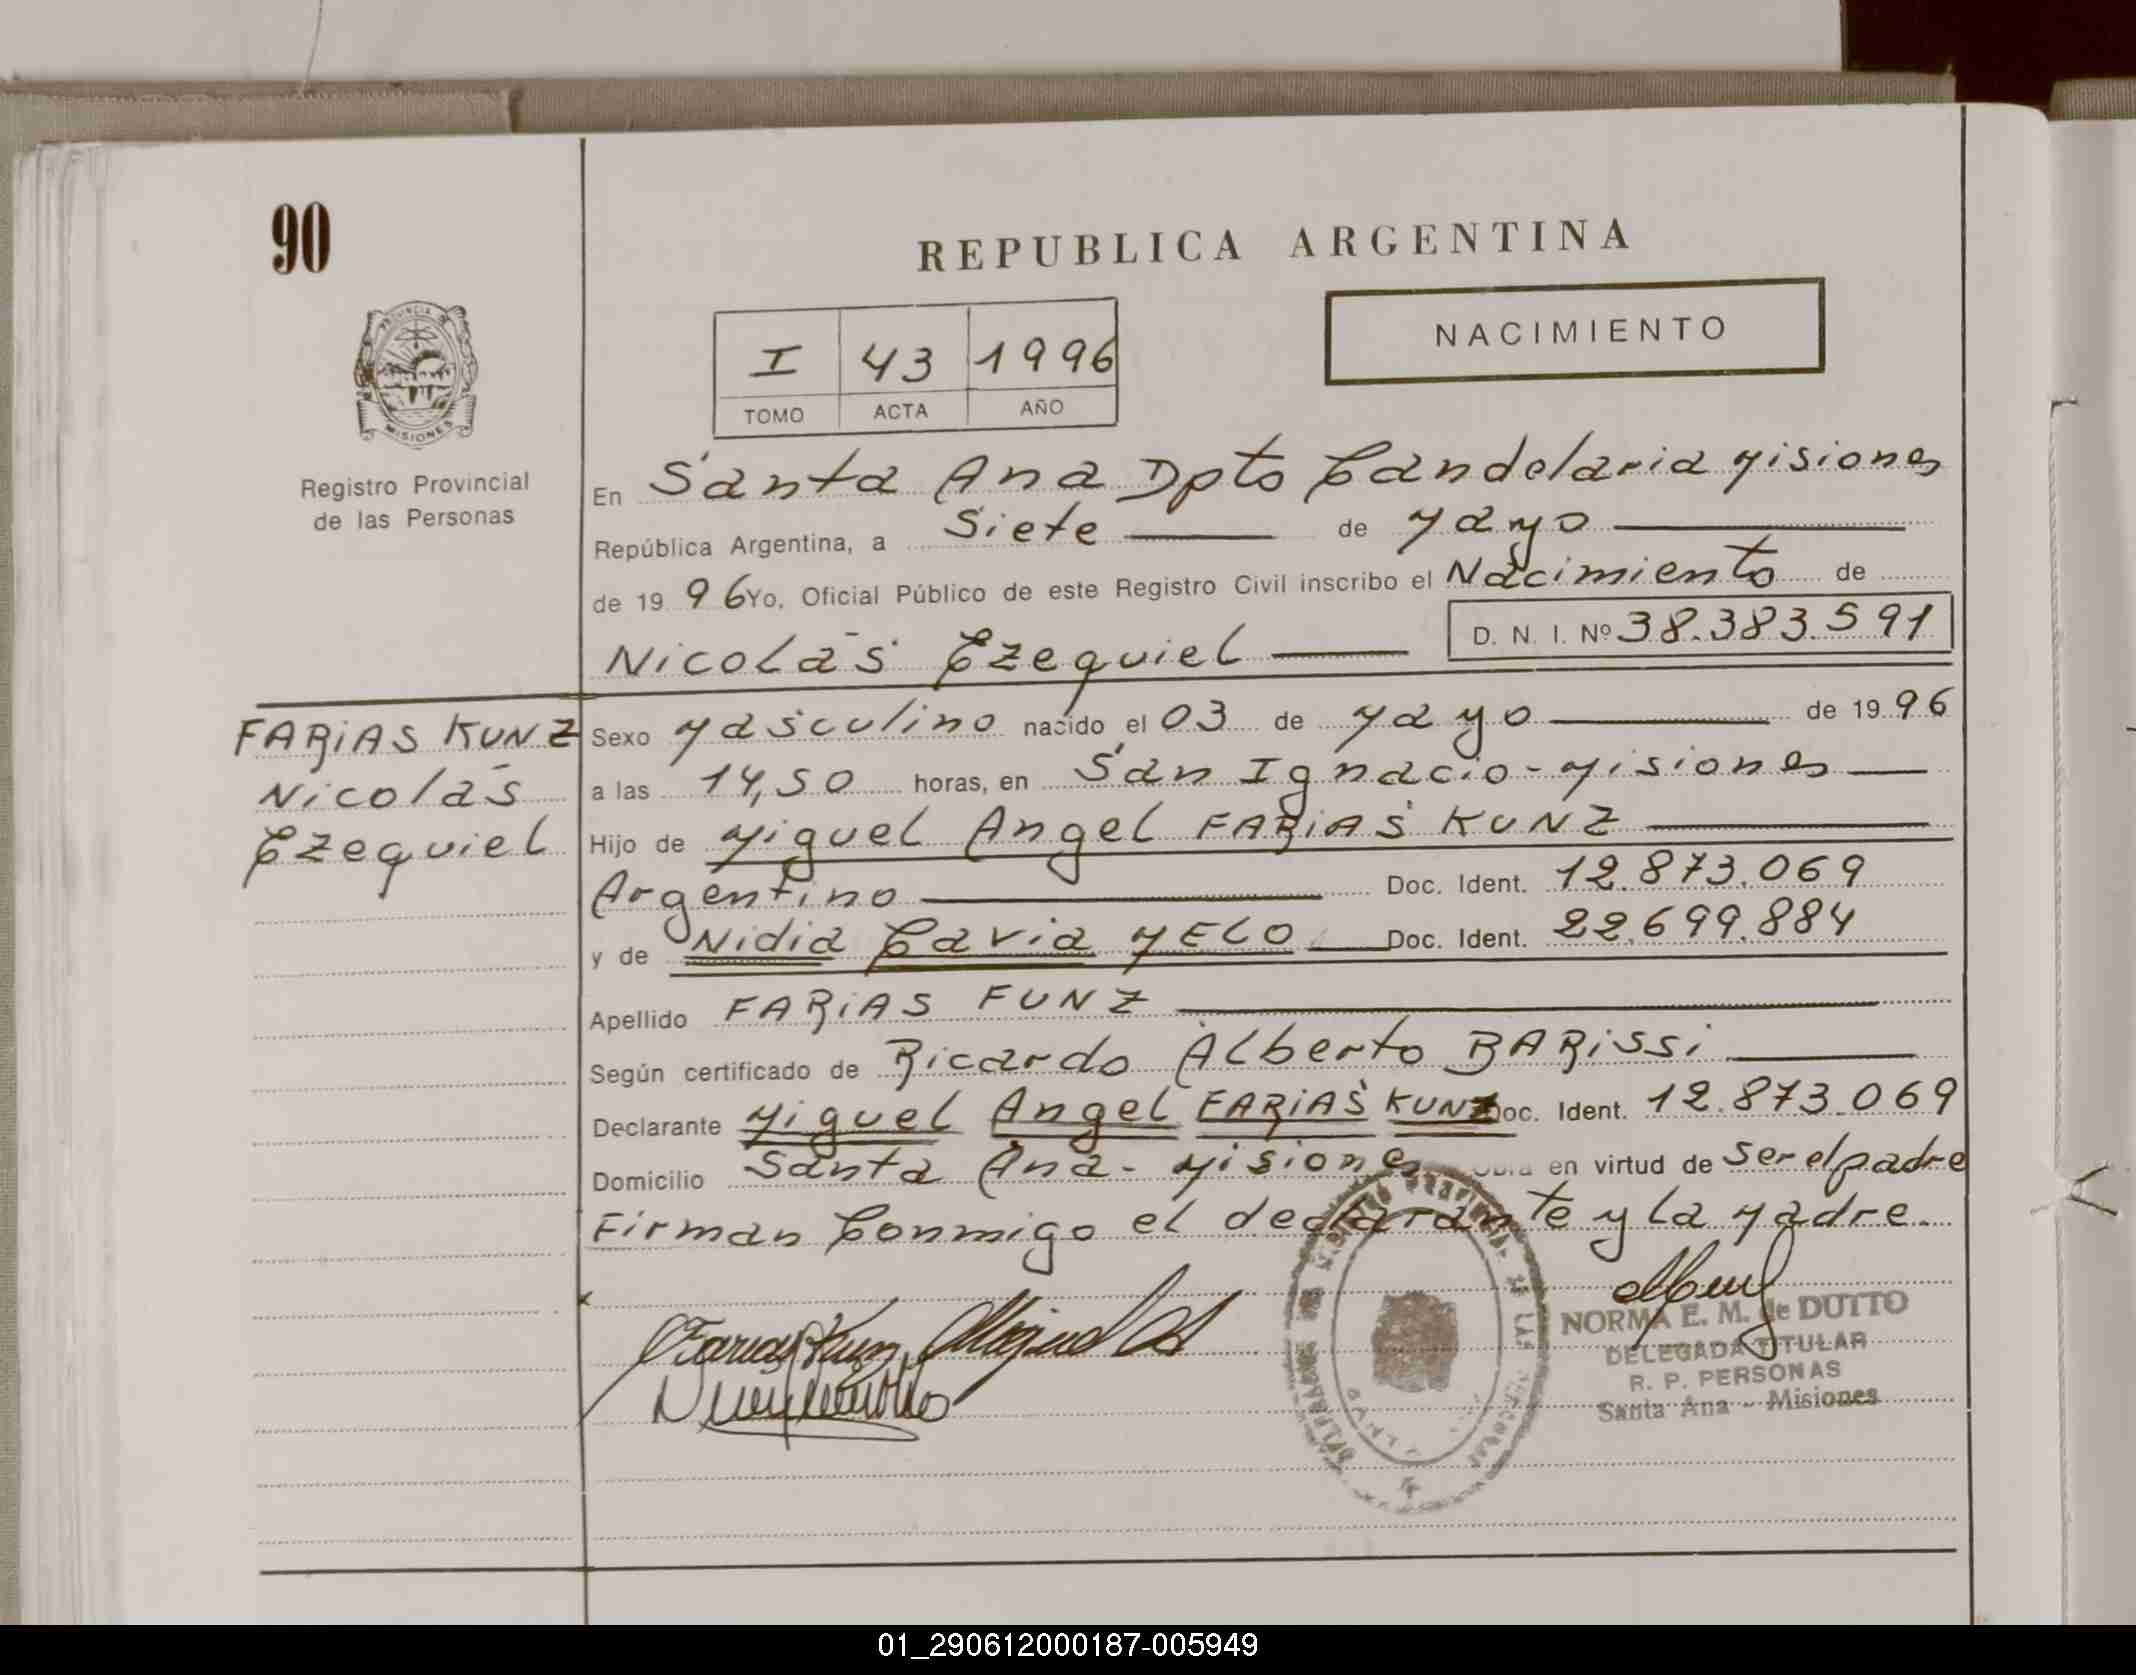 90
REPUBLICA ARGENTINA
NACIMIENTO
I 43 1996
TOMO ACTA AÑO
PROVINCIA DE
MISIONES
Registro Provincial
de las Personas
En Santa Ana Dpto Candelaria Misiones
República Argentina, a Siete de Mayo
de 19 96 Yo, Oficial Público de este Registro Civil inscribo el Nacimiento de
Nicolás Ezequiel D. N. I. Nº 38.383.591
FARIAS KUNZ
Nicolás
Ezequiel
Sexo Masculino nacido el 03 de Mayo de 19 96
a las 14,50 horas, en San Ignacio - Misiones
Hijo de Miguel Angel FARIAS KUNZ
Argentino Doc. Ident. 12.873.069
y de Nidia Cavia MELO Doc. Ident. 22.699.884
Apellido FARIAS FUNZ
Según certificado de Ricardo Alberto BARISSI
Declarante Miguel Angel FARIAS KUNZ Doc. Ident. 12.873.069
Domicilio Santa Ana - Misiones Obra en virtud de ser el padre
Firman Conmigo el declarante y la Madre.
Farias Kunz Miguel A
NORMA E. M. de DUTTO
DELEGADA TITULAR
R. P. PERSONAS
Santa Ana - Misiones
01_290612000187-005949